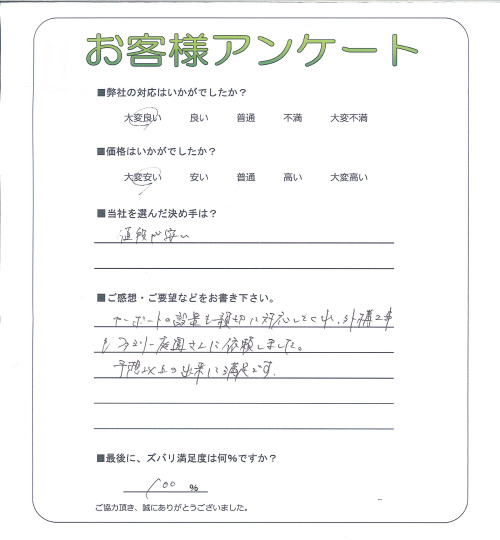 お客様アンケート
■弊社の対応はいかがでしたか？
大変良い 良い 普通 不満 大変不満
■価格はいかがでしたか？
大変安い 安い 普通 高い 大変高い
■当社を選んだ決め手は？
値段が安い
■ご感想・ご要望などをお書き下さい。
カーポートの設置も親切に対応してくれ、外構工事
もファミリー庭園さんに依頼しました。
予想以上の出来に満足です。
■最後に、ズバリ満足度は何％ですか？
100 ％
ご協力頂き、誠にありがとうございました。